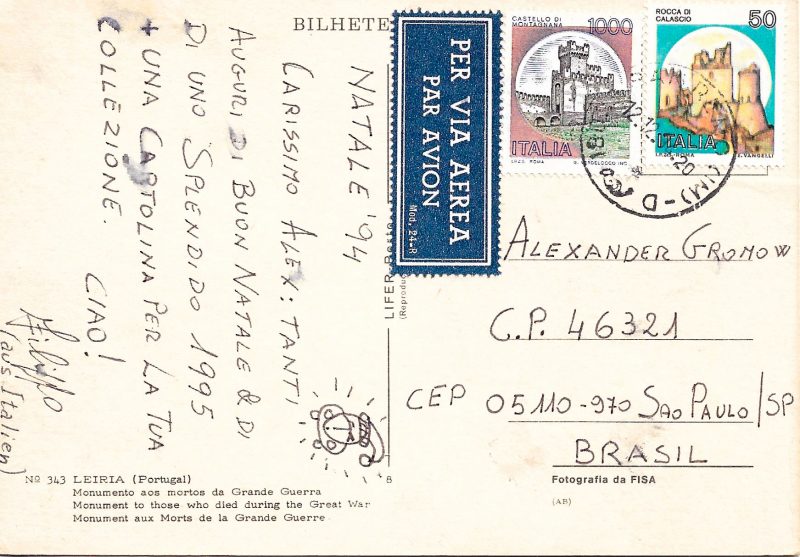 BILHETE
NATALE '94
CARISSIMO ALEX: TANTI
AUGURI DI BUON NATALE & DI
DI UNO SPLENDIDO 1995
+ UNA CARTOLINA PER LA TUA
COLLEZIONE.
CIAO!
Filippo
(aus Italien)
Nº 343 LEIRIA (Portugal)
Monumento aos mortos da Grande Guerra
Monument to those who died during the Great War
Monument aux Morts de la Grande Guerre
8
LIFER
(Reproduc
PER VIA AEREA
PAR AVION
Mod. 24-R
CASTELLO DI
MONTAGNANA
1000
ITALIA
I.P.Z.S. ROMA
ROCCA DI
CALASCIO
50
ITALIA
I.P.Z.S. ROMA E. VANGELLI
12.12
20
ALEXANDER GROMOW
C.P. 46321
CEP 05110-970 SAO PAULO/SP
BRASIL
Fotografia da FISA
(AB)